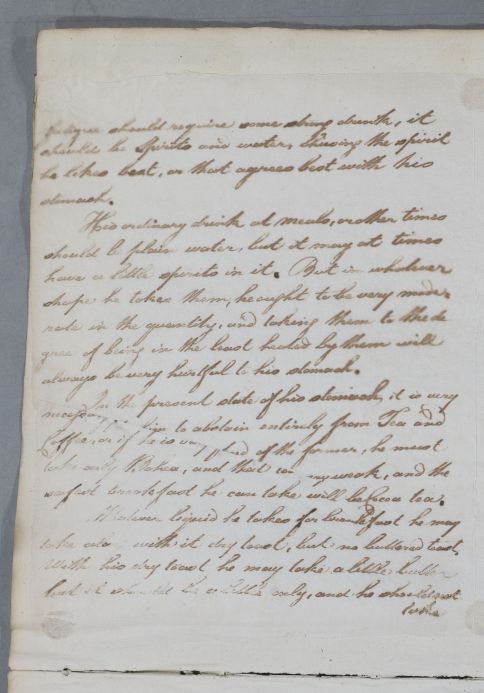 fatigue should require some strong drink, it
should be Spirits and water, Chusing the spirit
he likes best, or that agrees best with his
stomach.
His ordinary drink at meals, or other times
should be plain water, but it may at times
have a little spirits in it. But in whatever
shape he takes them, he ought to be very mode-
rate in the quantity, and taking them to the de
gree of being in the least heated by them will
always be very hurtful to his stomach.
In the present state of his stomach, it is very
necessary him to abstain entirely from Tea and
Coffee, or if he is very fond of the former, he must
take only Bohea, and that very weak, and the
safest breakfast he can take will be Cocoa tea.
Whatever liquid he takes for breakfast he may
take along with it dry toast, but no buttered toast,
With his dry toast he may take a little butter
but it should be a little only, and he should not